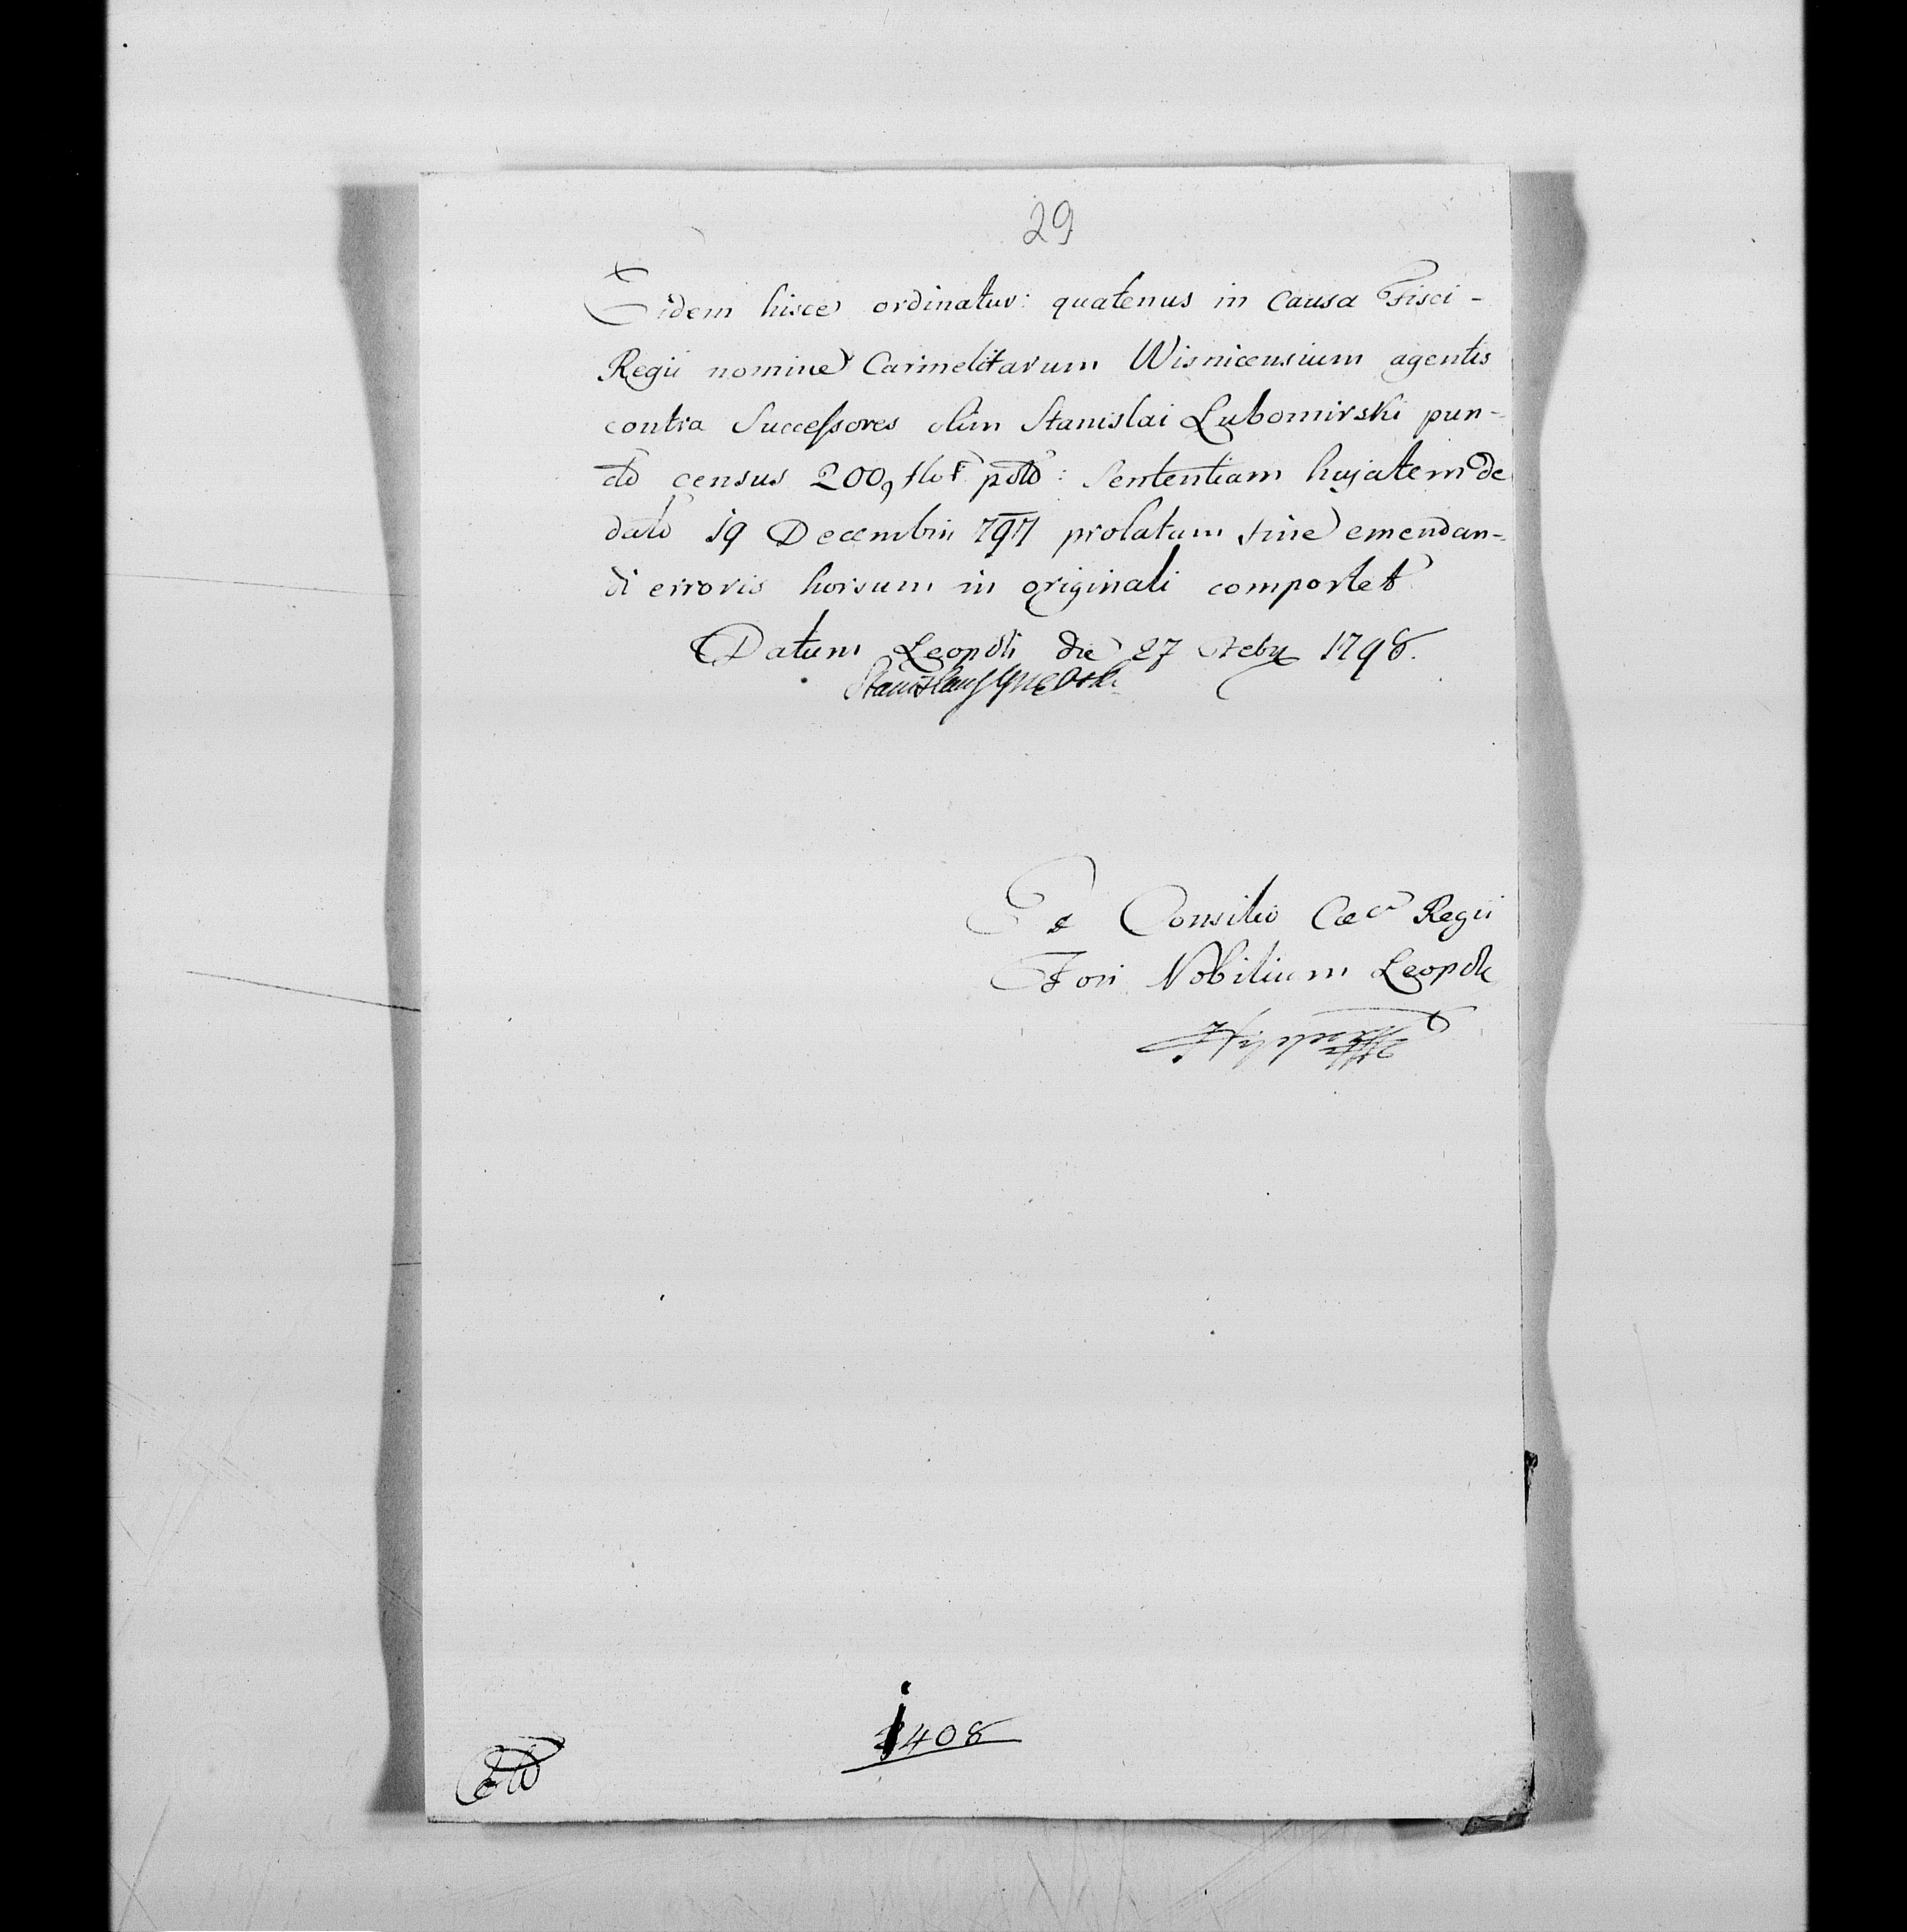 29
Eidem hisce ordinatur: quatenus in Causa Fisci-
Regii nomine Carmelitarum Wisnicensium agentis
contra Successores olim Stanislai Lubomirski pun-
cto census 200, flor polo: Sententiam hujatem de
dato 19 Decembris 797 prolatam fine emendan-
di erroris horsum in originali comportet
Datum Leopoli die 27 Febr 1798.
Ex Consilio Caeo Regii
Fori Nobilium Leopol
1408